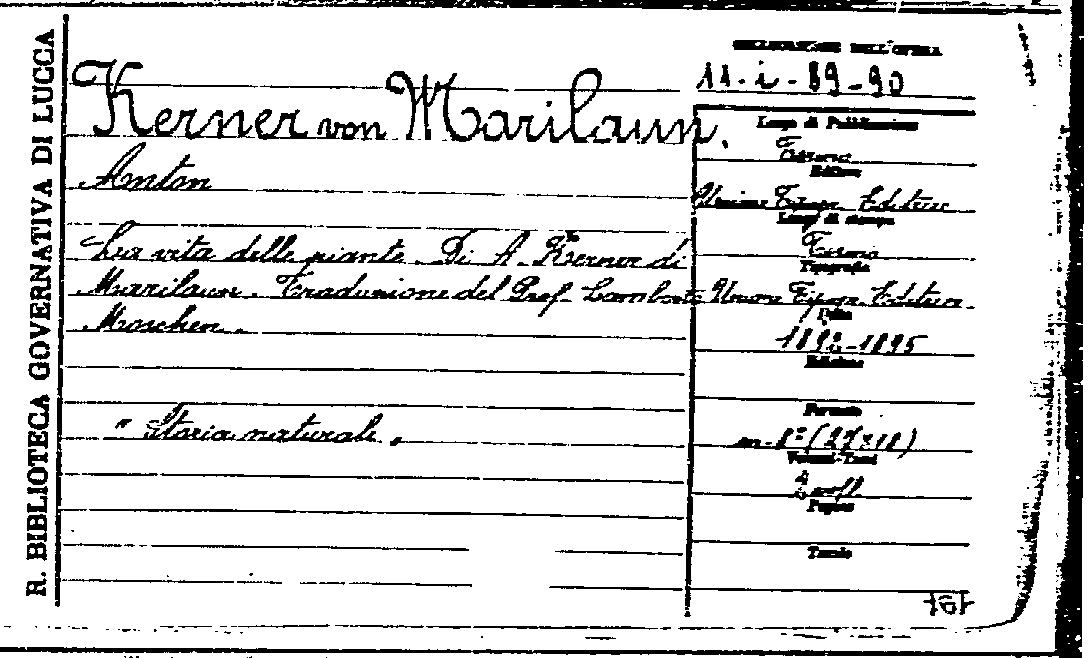 R. BIBLIOTECA GOVERNATIVA DI LUCCA
COLLOCAZIONE DELL'OPERA
11-i-89-90
Kerner von Marilaun.
Anton
La vita delle piante. Di A. Kerner di
Marilaun. Traduzione del Prof. Lamberto
Moschen.
" Storia naturale "
Luogo di Pubblicazione
Torino
Editore
Unione Tipogr. Editrice
Luogo di stampa
Torino
Tipografia
Unione Tipogr. Editrice
Data
1892-1895
Edizione
Formato
in-8° (27×18)
Volumi-Tomi
2 voll
Pagine
Tavole